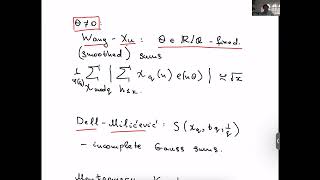 θ≠0:
Wang - Xu : θ ∈ ℝ/ℚ - fixed.
(smoothed) sums
1/φ(q) Σ_{χ mod q} | Σ_{n≤x} χ_q(n) e(nθ) | ≍ √x
Dell - Milićević : S(χ_q, t_q, 1/2)
- incomplete Gauss sums.